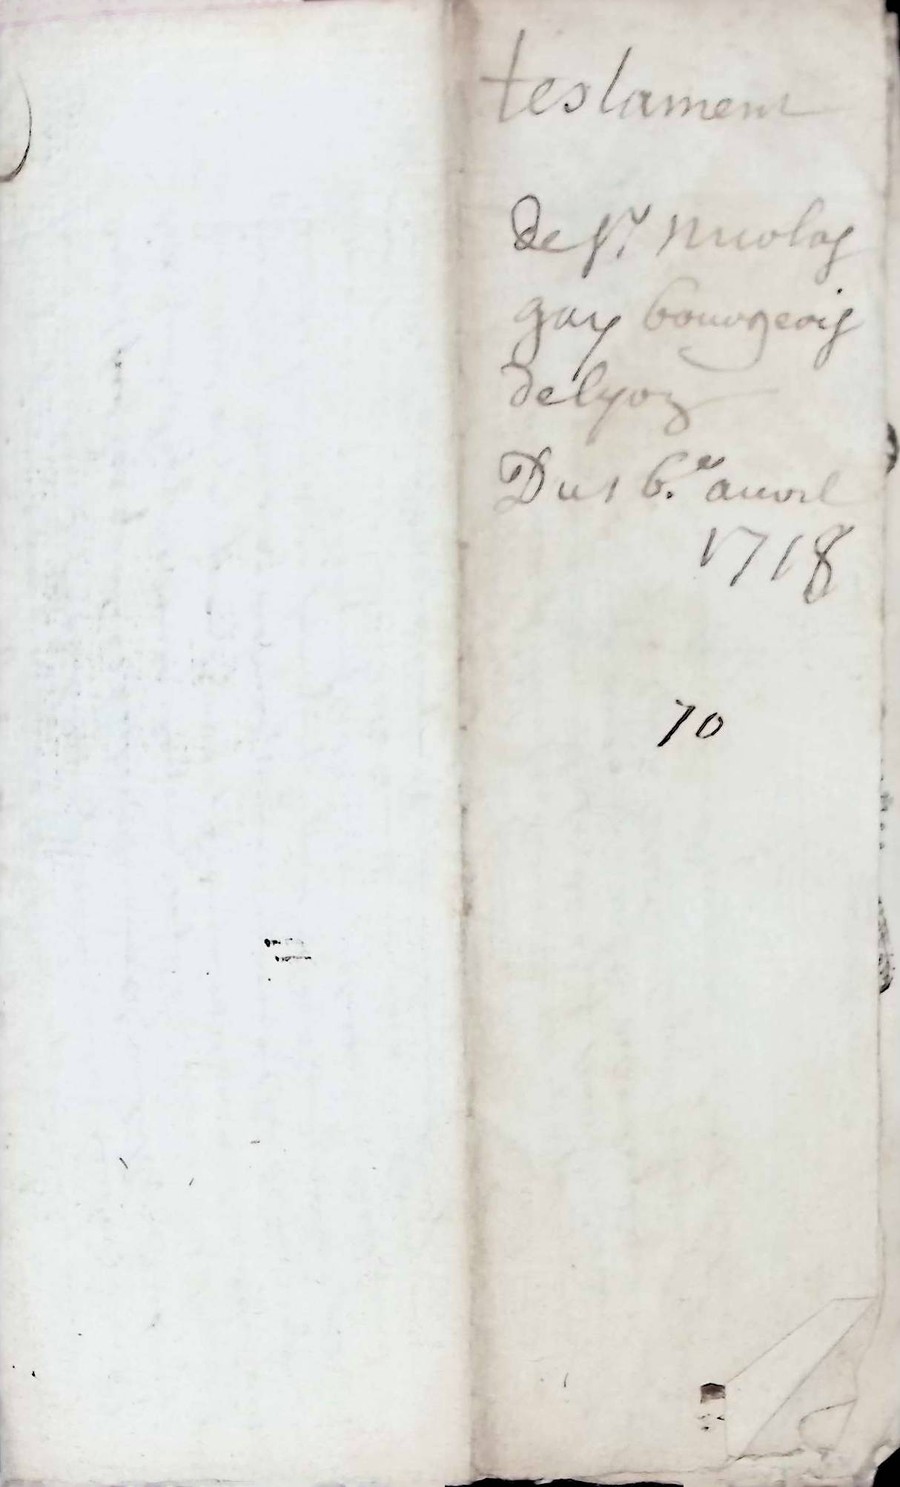 testament
de sr nicolas
gay bourgeois
de lyon
Du 16.e auril
1718
70